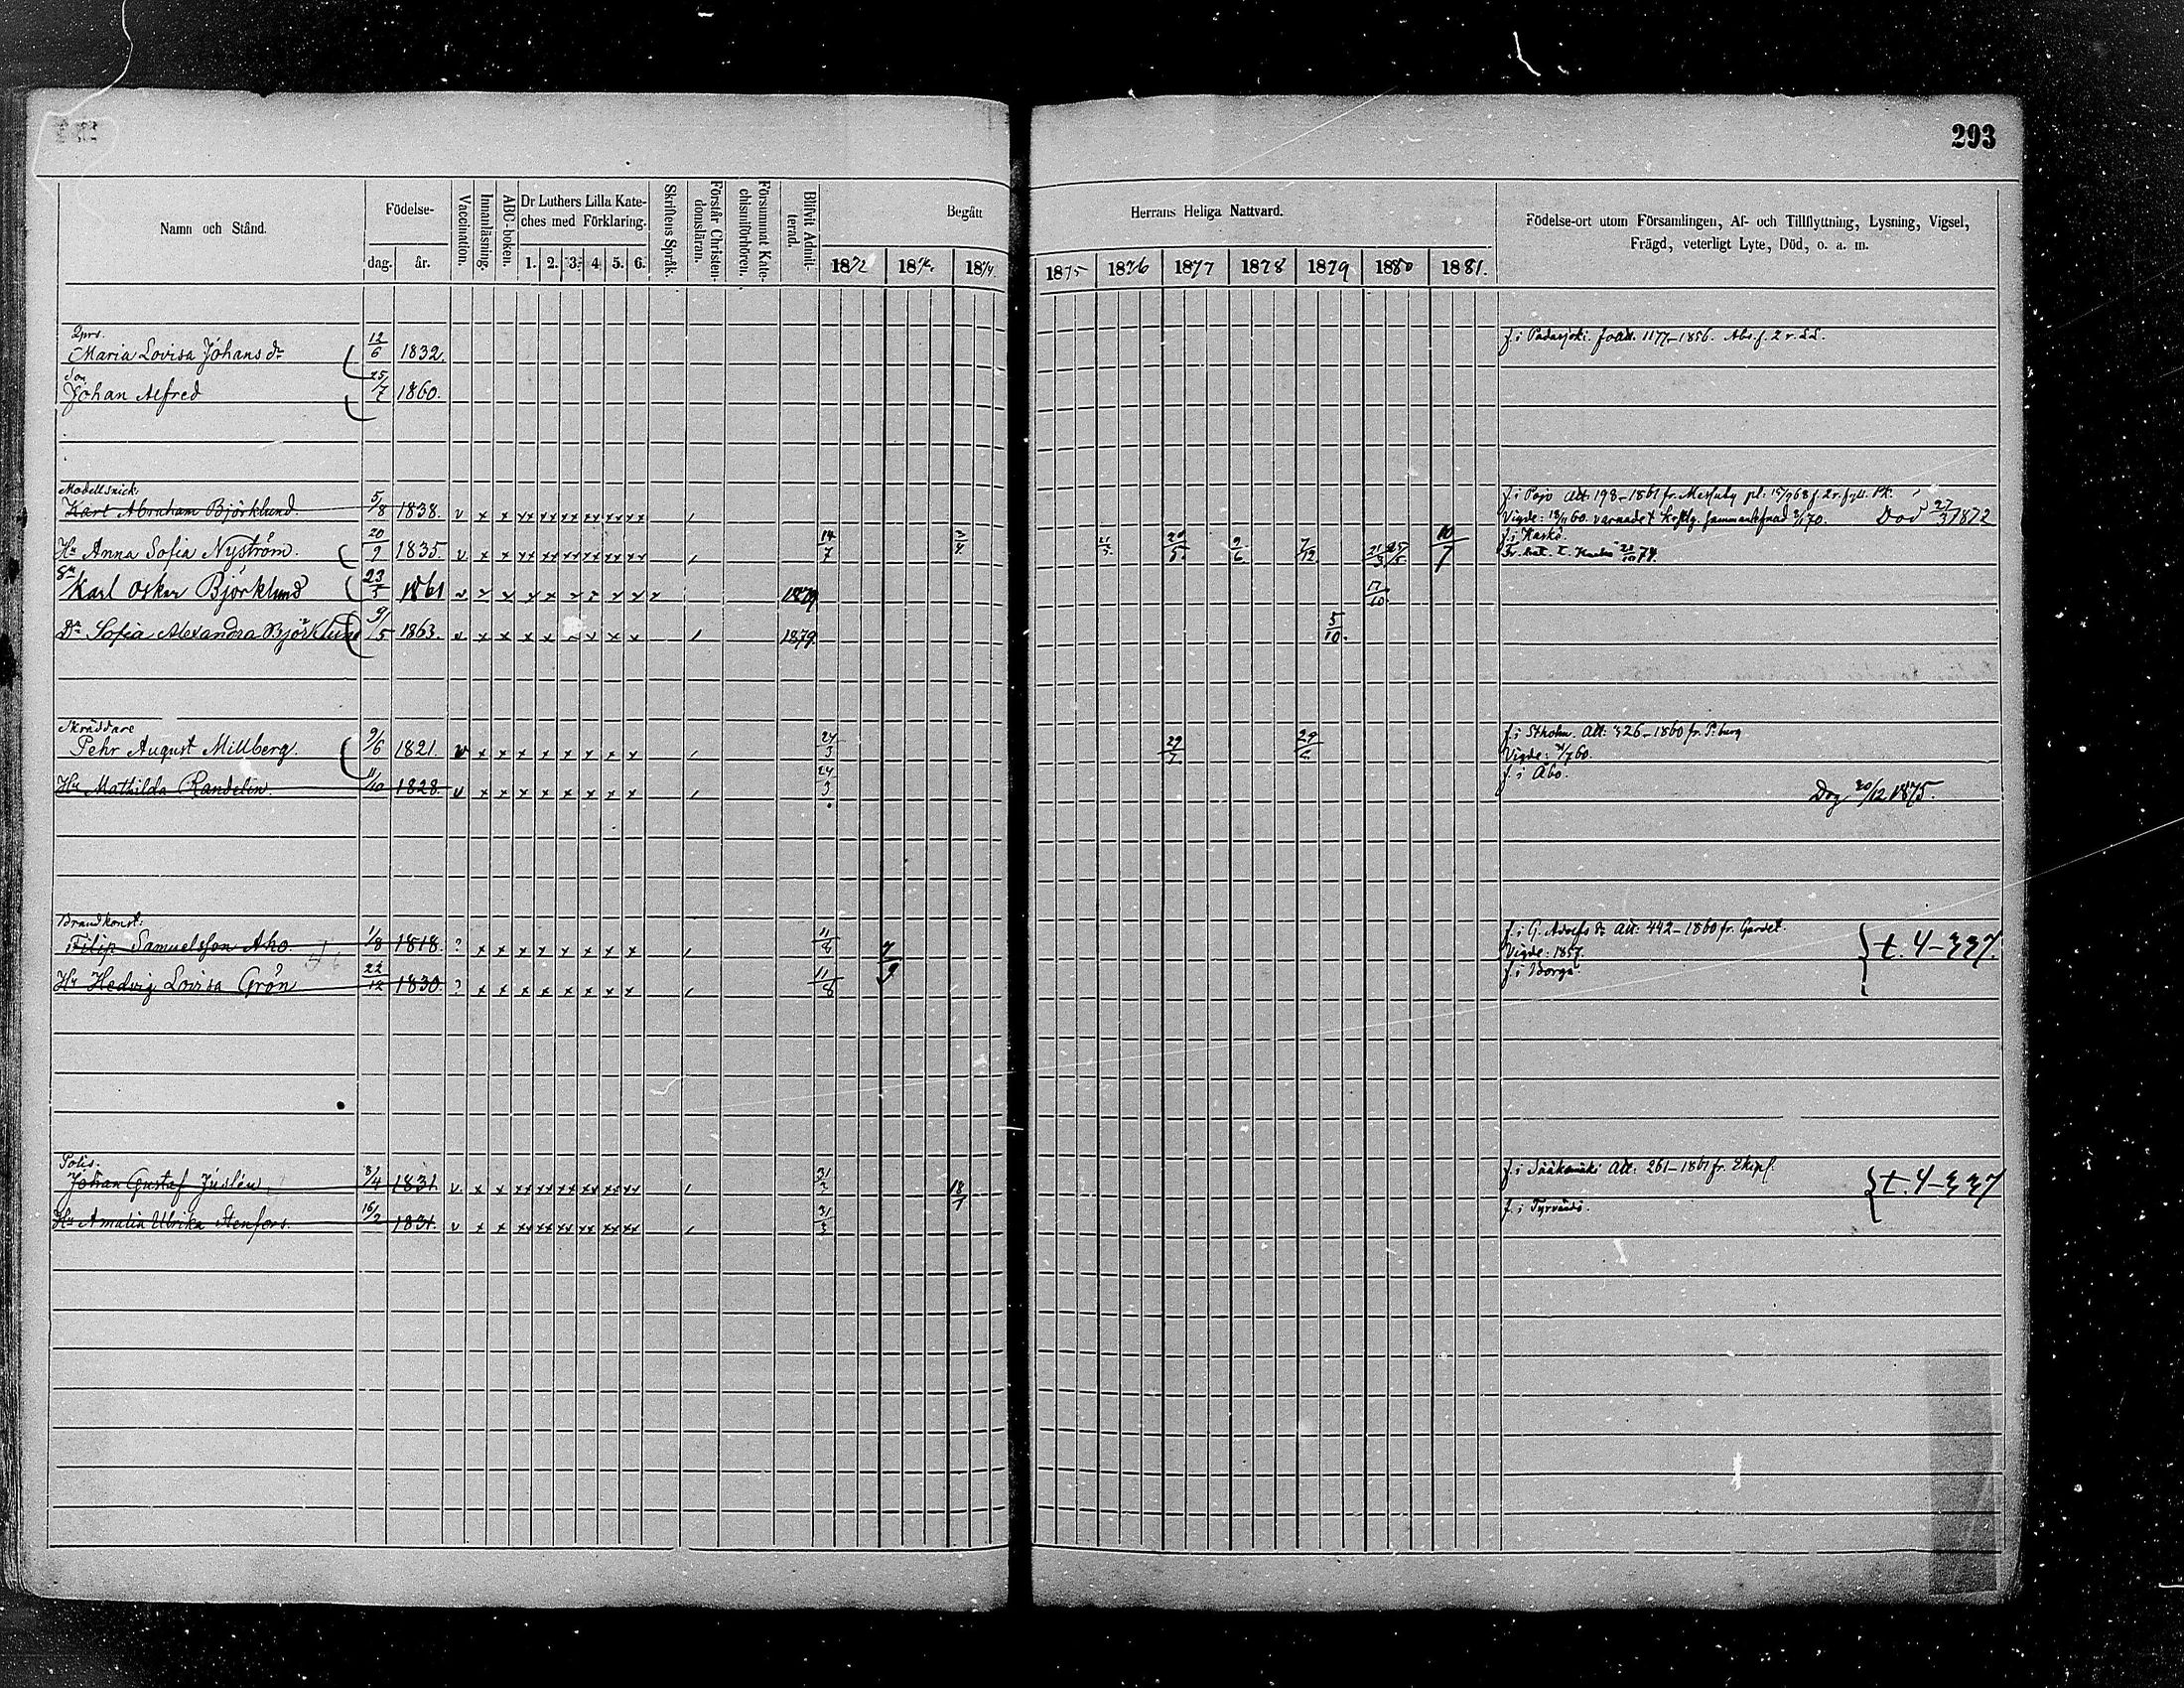 293
Namn och Stånd.
Födelse-
dag. år.
Vaccination.
Innanläsning.
ABC-boken.
Dr Luthers Lilla Kate-
ches med Förklaring.
1. 2. 3. 4. 5. 6.
Skriftens Språk.
Förstår Christen-
domsläran.
Försummat Kate-
chismiförhören.
Blifvit Admit-
terad.
Begått Herrans Heliga Nattvard.
1872 1874 1875 1876 1877 1878 1879 1880 1881.
Födelse-ort utom Församlingen, Af- och Tillflyttning, Lysning, Vigsel,
Frägd, veterligt Lyte, Död, o. a. m.
Maria Lovisa Johans dr 12/6 1832. f. i Padasjoki. 1177-1856. Abs. f. 2 r.
Son
Johan Alfred 25/7 1860.
Modellsnick.
Karl Abraham Björklund. 5/8 1838. v f. i Pojo Att: 198-1861 fr.
Vigde: 60. varnade t. 70. Död 27/3 1872
Hu Anna Sofia Nyström. 20/9 1835. v 14/7 3/4 21/5 20/5 9/6 7/12 21/3 25/5 10/7 f. i Kaskö.
Sn Karl Oskar Björklund 23/5 1861 1879 17/10
Dr Sofia Alexandra Björklund 9/5 1863. v 1879. 5/10.
Skräddare
Pehr August Millberg. 9/6 1821. v 24/3 29/7 29/6 f. i Stholm. Att: 326-1860 fr. P.burg
Vigde: /7 60.
Hu Mathilda Randelin. 11/10 1828. v 24/3 f. i Åbo.
Dog 20/12 1875.
Brandkonst:
Filip Samuelsson Aho. 1/8 1818. ? 11/8 7/9 f. i G. Adolfs Att: 442-1860 fr. Gardet.
Vigde: 1857. t. 4-337.
Hu Hedvig Lovisa Grön 22/12 1830. ? 11/8 f. i Borgå
Polis.
Johan Gustaf Juslén 8/4 1831. v. 31/3 18/1 f. i Sääksmäki Att: 261-1861 fr. Ekipf.
t. 4-337
Hu Amalia Ulrika Stenfors. 16/2 1831. v 31/3 f. i Tyrväntö.